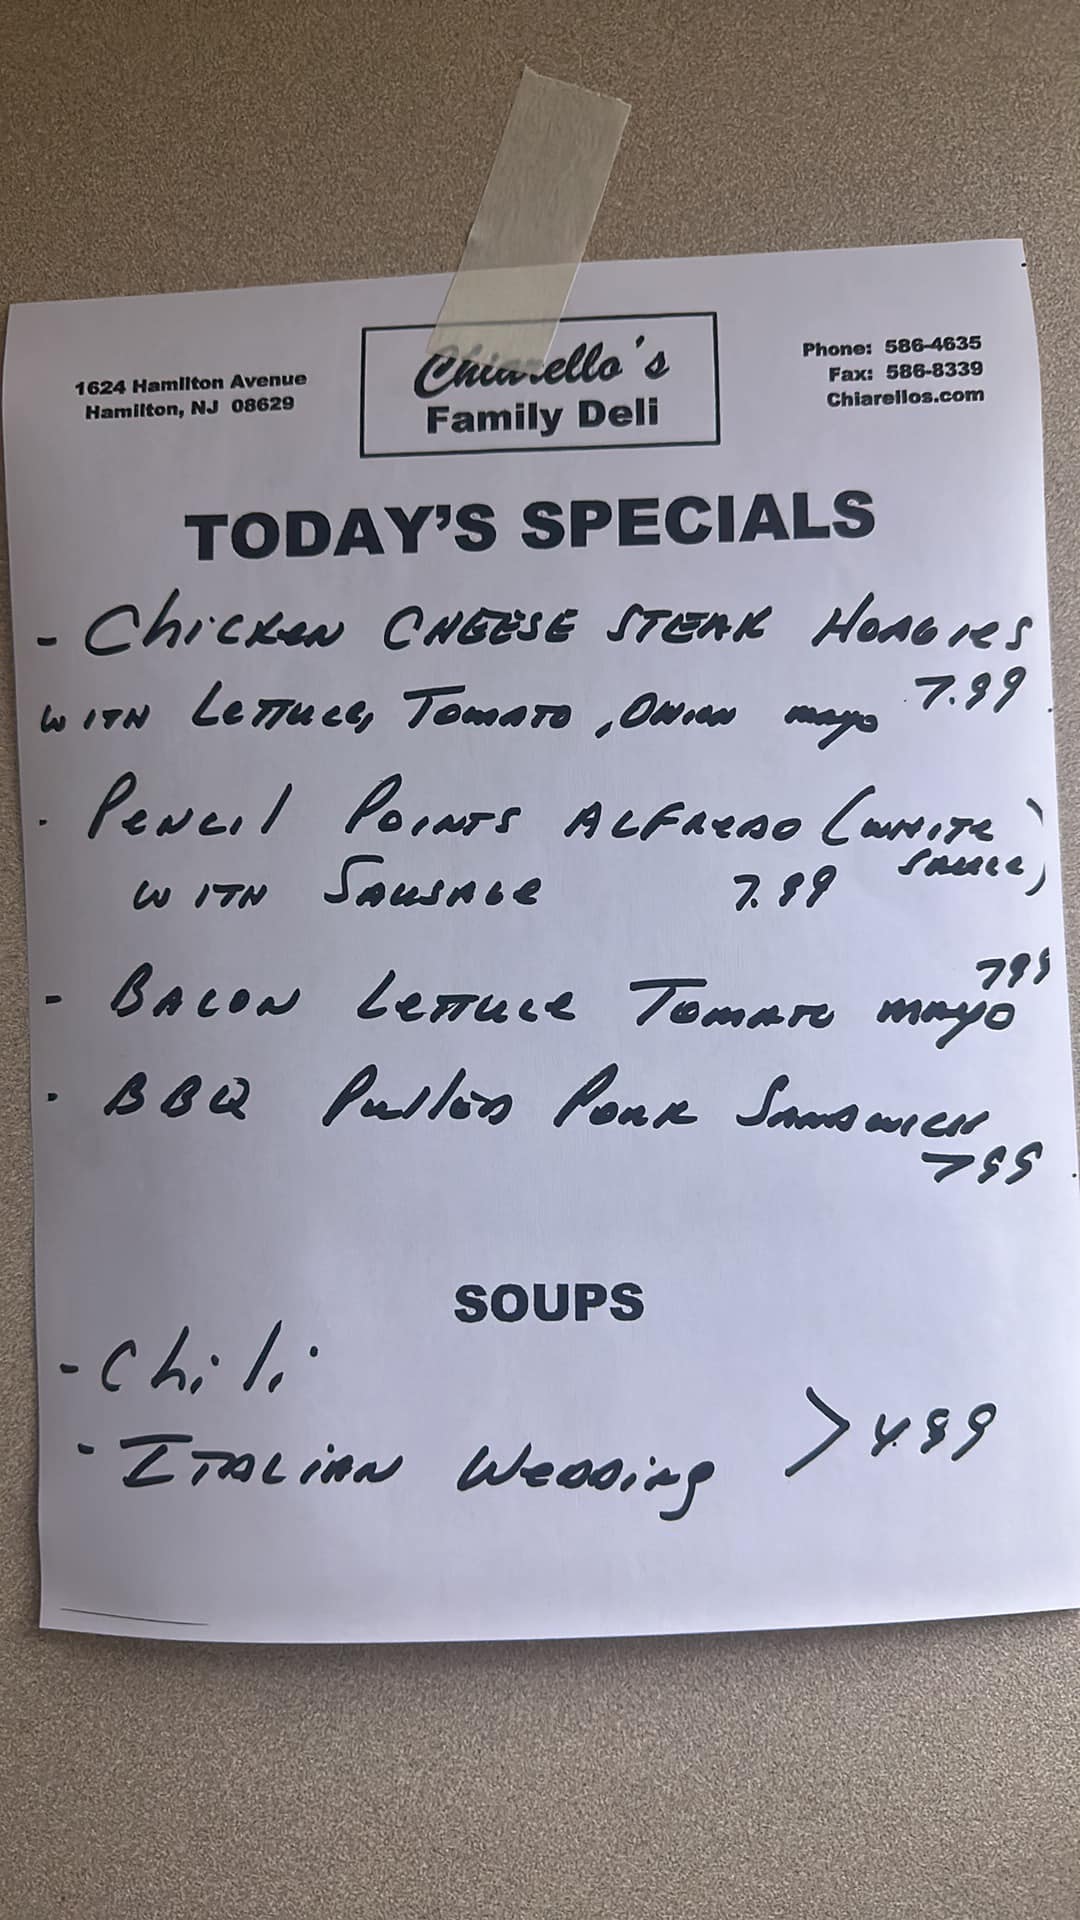 1624 Hamilton Avenue
Hamilton, NJ 08629
Chiarello's
Family Deli
Phone: 586-4635
Fax: 586-8339
Chiarellos.com
TODAY'S SPECIALS
- Chicken CHEESE STEAK HOAGIES
WITH LETTUCE, TOMATO, ONION mayo 7.99
- PENCIL POINTS ALFREDO (WHITE
SAUCE)
WITH SAUSAGE 7.99
799
- BACON LETTUCE TOMATO MAYO
- BBQ Pulled PORK SANDWICH
799
SOUPS
- Chili
- ITALIAN WEDDING > 4.99